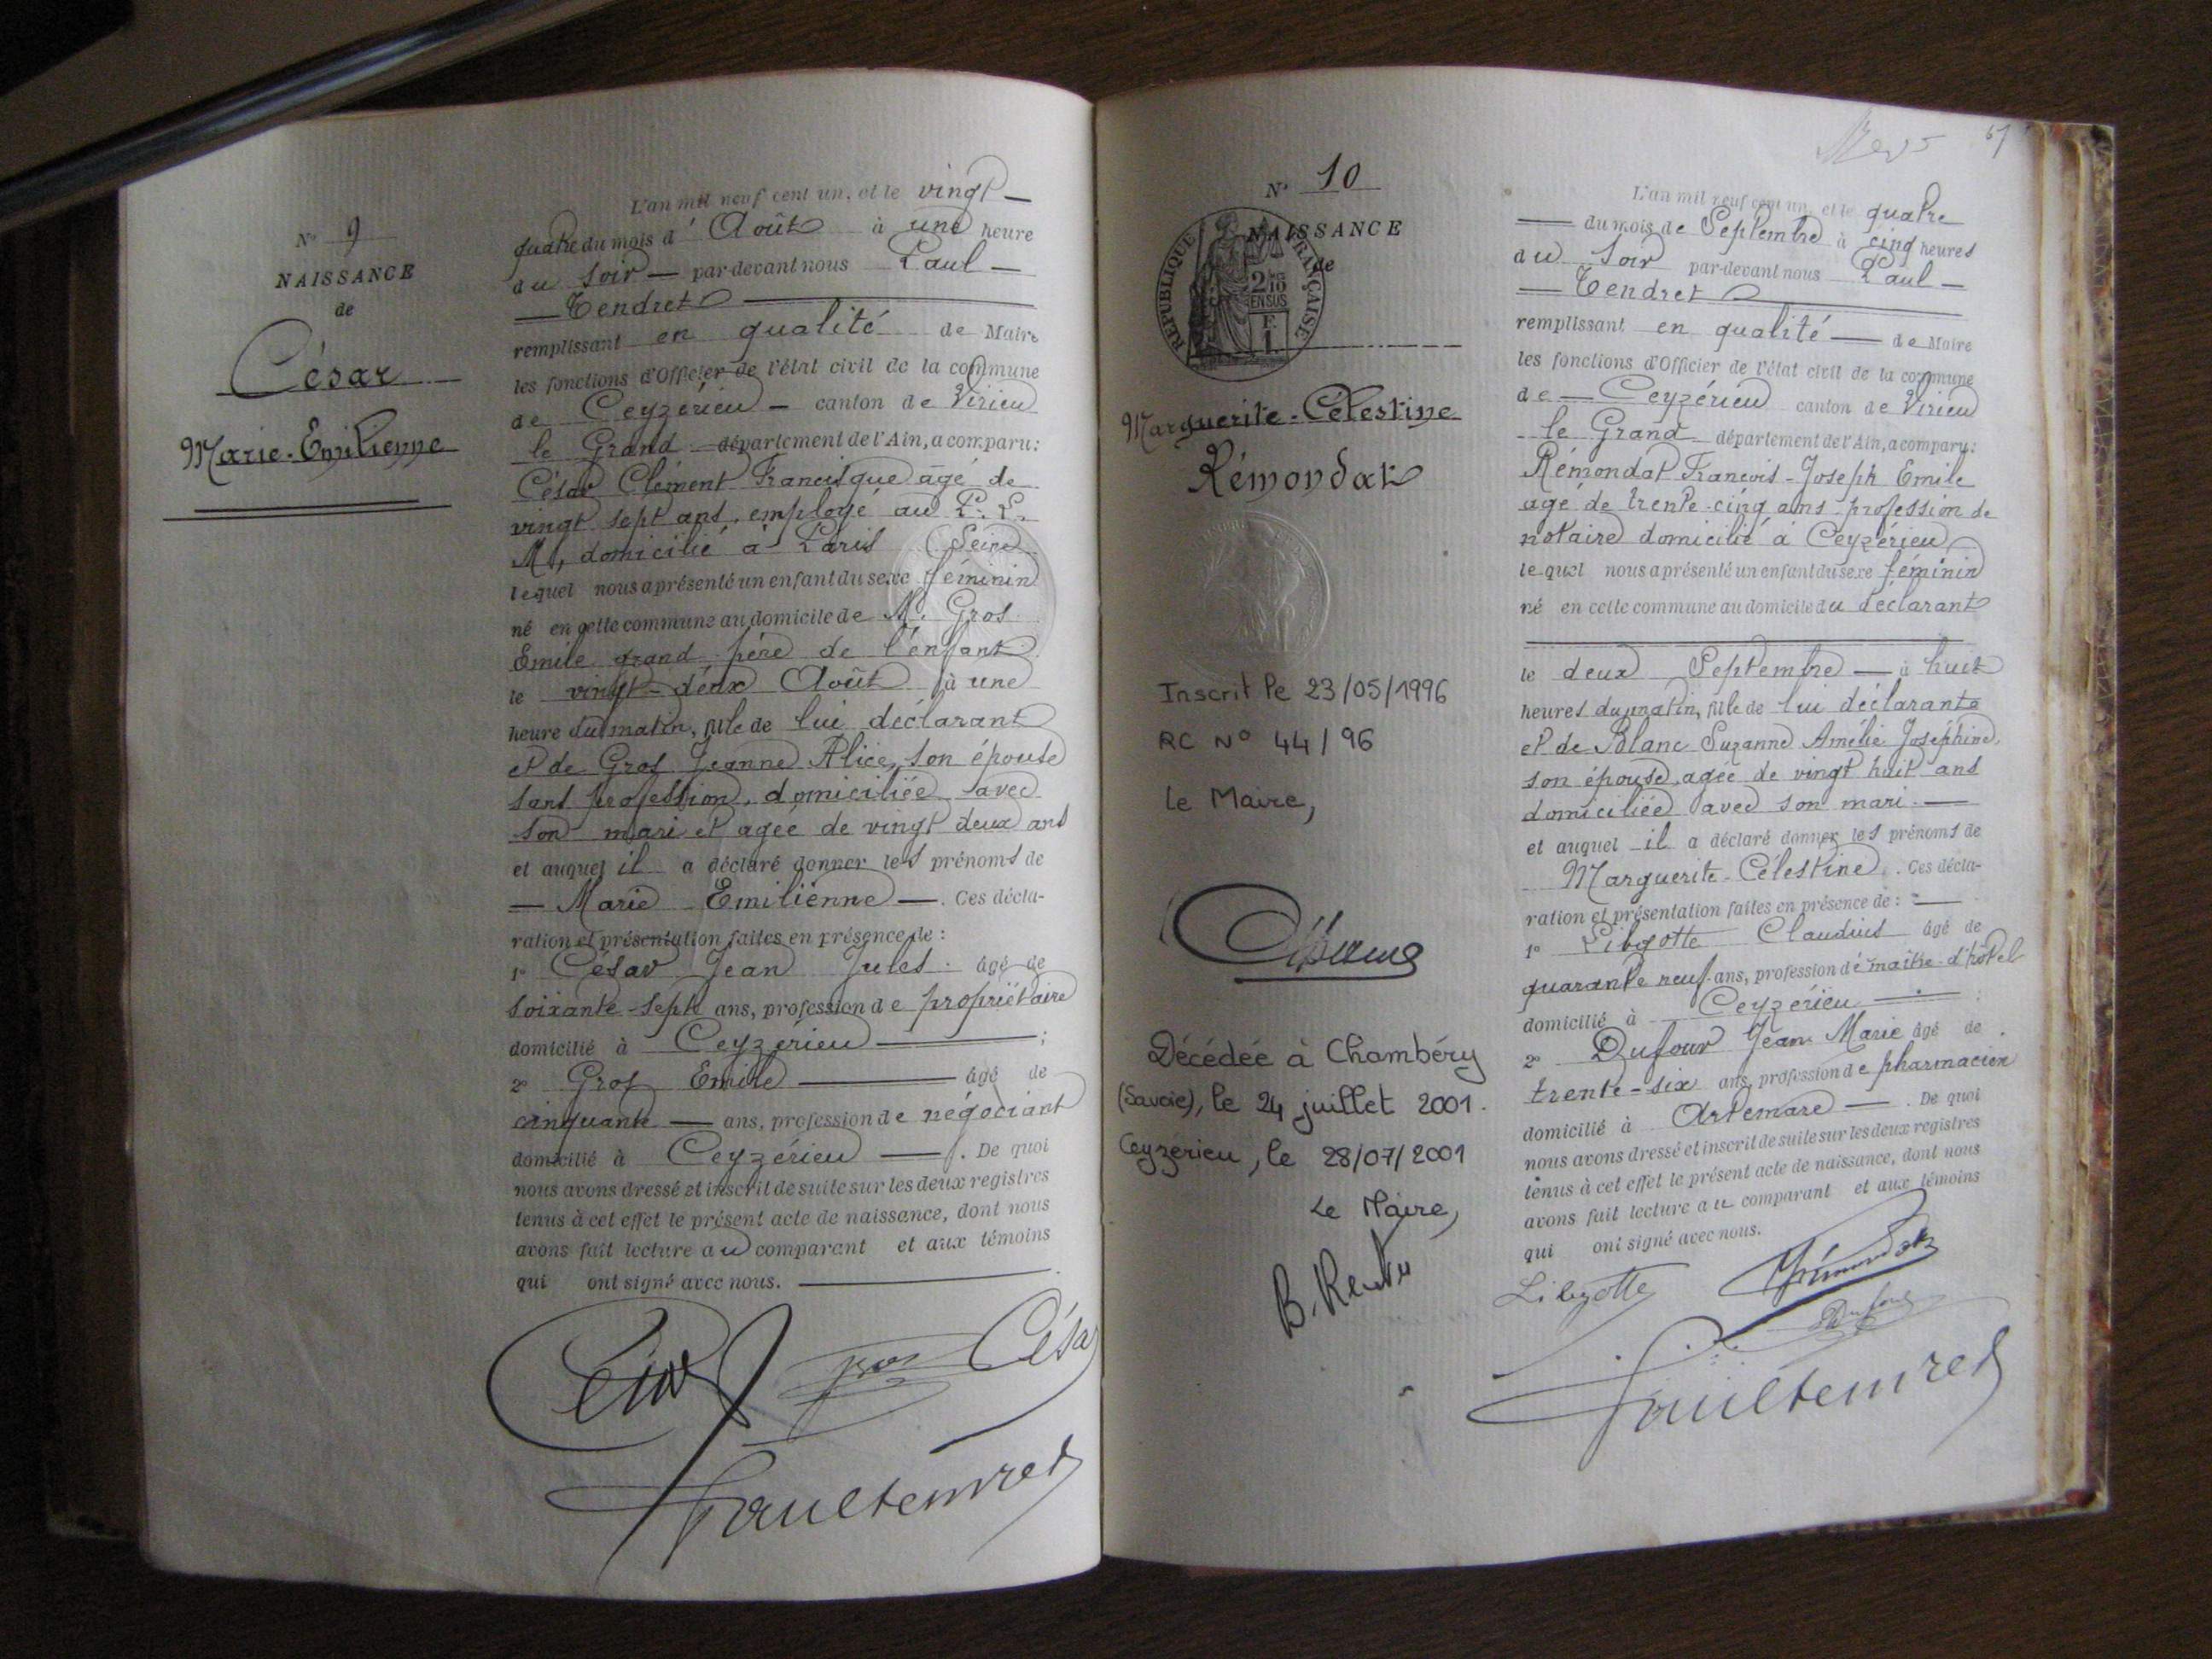 N° 9
NAISSANCE
de
César
Marie-Emilienne
L'an mil neuf cent un, et le vingt —
quatre du mois d'Août à une heure
du soir — par-devant nous Paul —
— Tendret
remplissant en qualité de Maire
les fonctions d'Officier de l'état civil de la commune
de Ceyzérieu — canton de Virieu
le Grand département de l'Ain, a comparu:
César Clément Francisque agé de
vingt sept ans, employé au P. L.
M, domicilié à Paris (Seine)
lequel nous a présenté un enfant du sexe féminin
né en cette commune au domicile de M. Gros
Emile grand père de l'enfant
le vingt-deux Août à une
heure du matin, fille de lui déclarant
et de Gros Jeanne Alice, son épouse
sans profession, domiciliée avec
son mari et agée de vingt deux ans
et auquel il a déclaré donner les prénoms de
— Marie Emilienne —. Ces décla-
ration et présentation faites en présence de :
1° César Jean Jules âgé de
soixante-sept ans, profession de propriétaire
domicilié à Ceyzérieu ;
2° Gros Emile âgé de
cinquante — ans, profession de négociant
domicilié à Ceyzérieu —. De quoi
nous avons dressé et inscrit de suite sur les deux registres
tenus à cet effet le présent acte de naissance, dont nous
avons fait lecture au comparant et aux témoins
qui ont signé avec nous.
César Gros Césa
Paul Tendret
67
N° 10
NAISSANCE
de
RÉPUBLIQUE FRANÇAISE
2/10
EN SUS
F.
1.
Marguerite-Célestine
Rémondat
Inscrit le 23/05/1996
RC N° 44/96
Le Maire,
Décédée à Chambéry
(Savoie), le 24 juillet 2001.
Ceyzérieu, le 28/07/2001
Le Maire,
L'an mil neuf cent un, et le quatre
— du mois de Septembre à cinq heures
du soir par-devant nous Paul —
— Tendret
remplissant en qualité — de Maire
les fonctions d'Officier de l'état civil de la commune
de — Ceyzérieu canton de Virieu
le Grand département de l'Ain, a comparu:
Rémondat François-Joseph Emile
agé de trente-cinq ans profession de
notaire domicilié à Ceyzérieu
lequel nous a présenté un enfant du sexe féminin
né en cette commune au domicile du déclarant
le deux Septembre — à huit
heures du matin, fille de lui déclarant
et de Blanc Suzanne Amélie Joséphine,
son épouse, agée de vingt huit ans
domiciliée avec son mari. —
et auquel il a déclaré donner les prénoms de
Marguerite-Célestine. Ces décla-
ration et présentation faites en présence de : —
1° Libzotte Claudius âgé de
quarante neuf ans, profession de maitre-d'hôtel
domicilié à Ceyzérieu — ;
2° Dufour Jean Marie âgé de
trente-six ans, profession de pharmacien
domicilié à Artemare —. De quoi
nous avons dressé et inscrit de suite sur les deux registres
tenus à cet effet le présent acte de naissance, dont nous
avons fait lecture au comparant et aux témoins
qui ont signé avec nous.
Libzotte Rémondat
Dufour
Paul Tendret